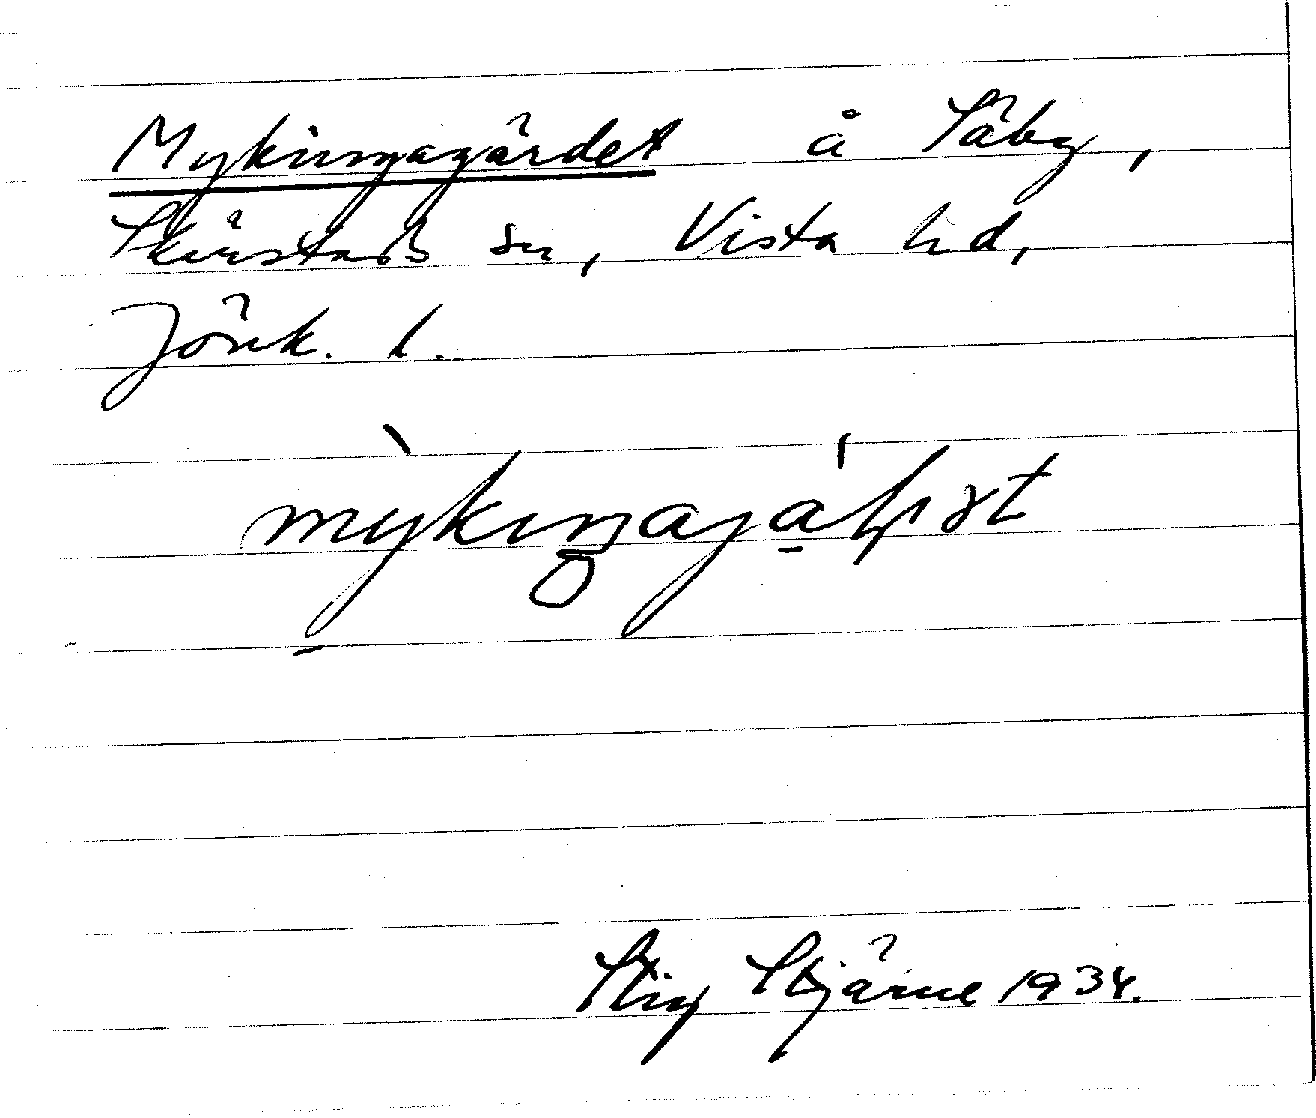 Mykingagärdet å Säby,
Skärstads sn, Vista hd,
Jönk. l.
Stig Stjärne 1934.